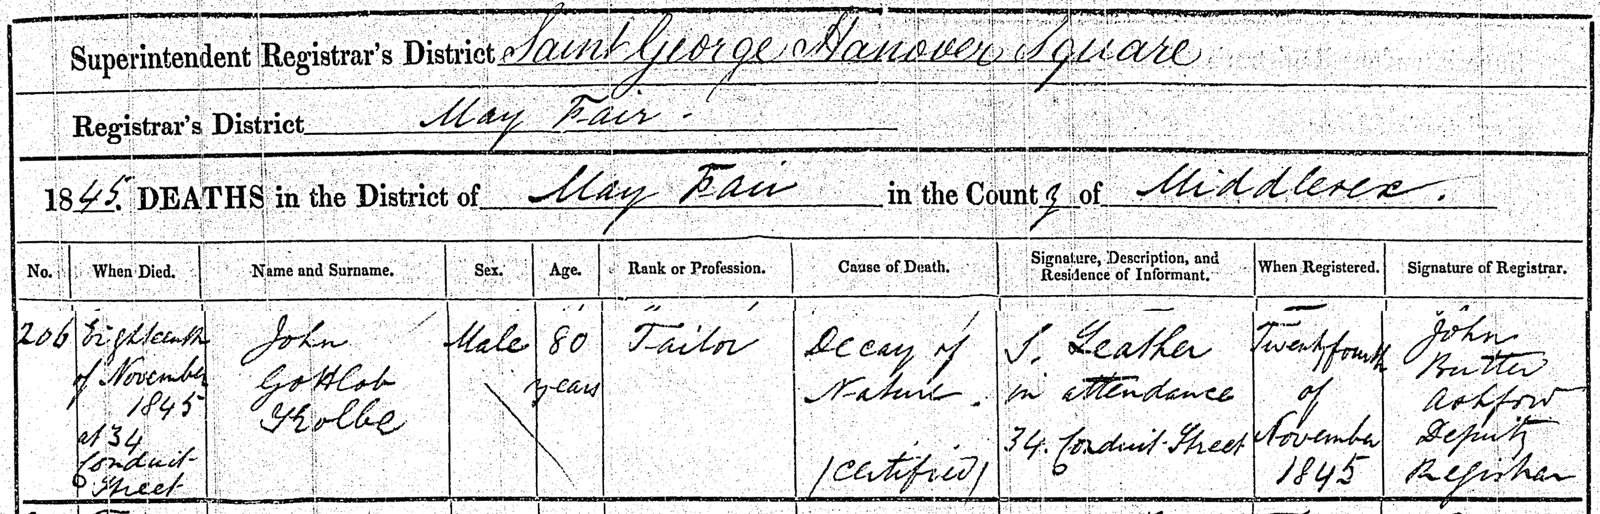 Superintendent Registrar's District Saint George Hanover Square
Registrar's District May Fair.
1845. DEATHS in the District of May Fair in the County of Middlesex.
No. When Died. Name and Surname. Sex. Age. Rank or Profession. Cause of Death. Signature, Description, and Residence of Informant. When Registered. Signature of Registrar.
206
Eighteenth
of November
1845
at 34
Conduit
Street
John
Gottlob
Kolbe
Male
80
years
Tailor
Decay of
Nature.
(Certified)
S. Leather
in attendance
34. Conduit Street
Twenty fourth
of
November
1845
John
Butter
Ashford
Deputy
Registrar